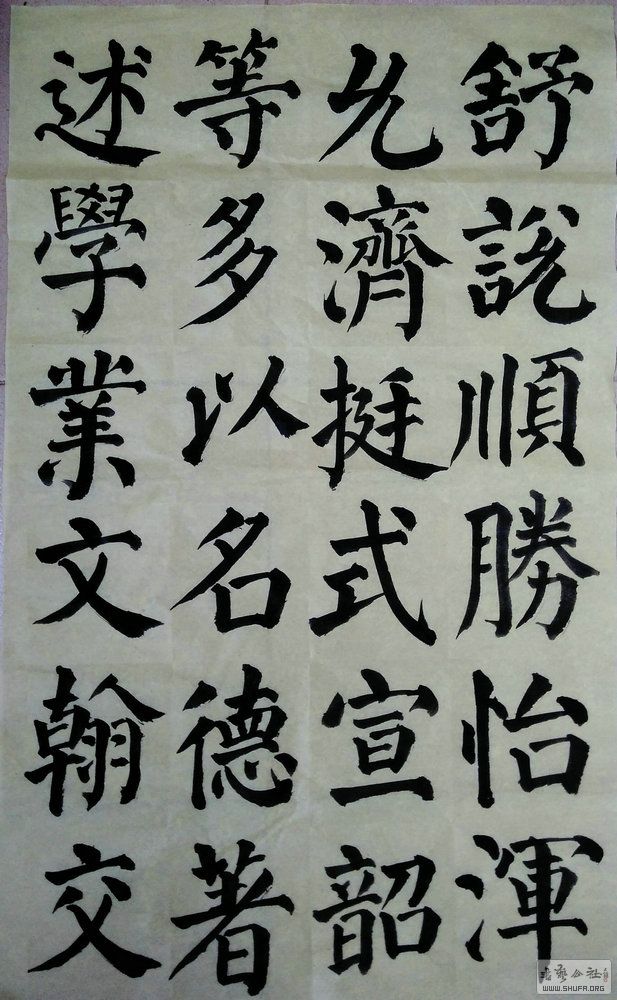 舒說順勝怡渾
允濟挺式宣韶
等多以名德著
述學業文翰交
WWW.SHUFA.ORG